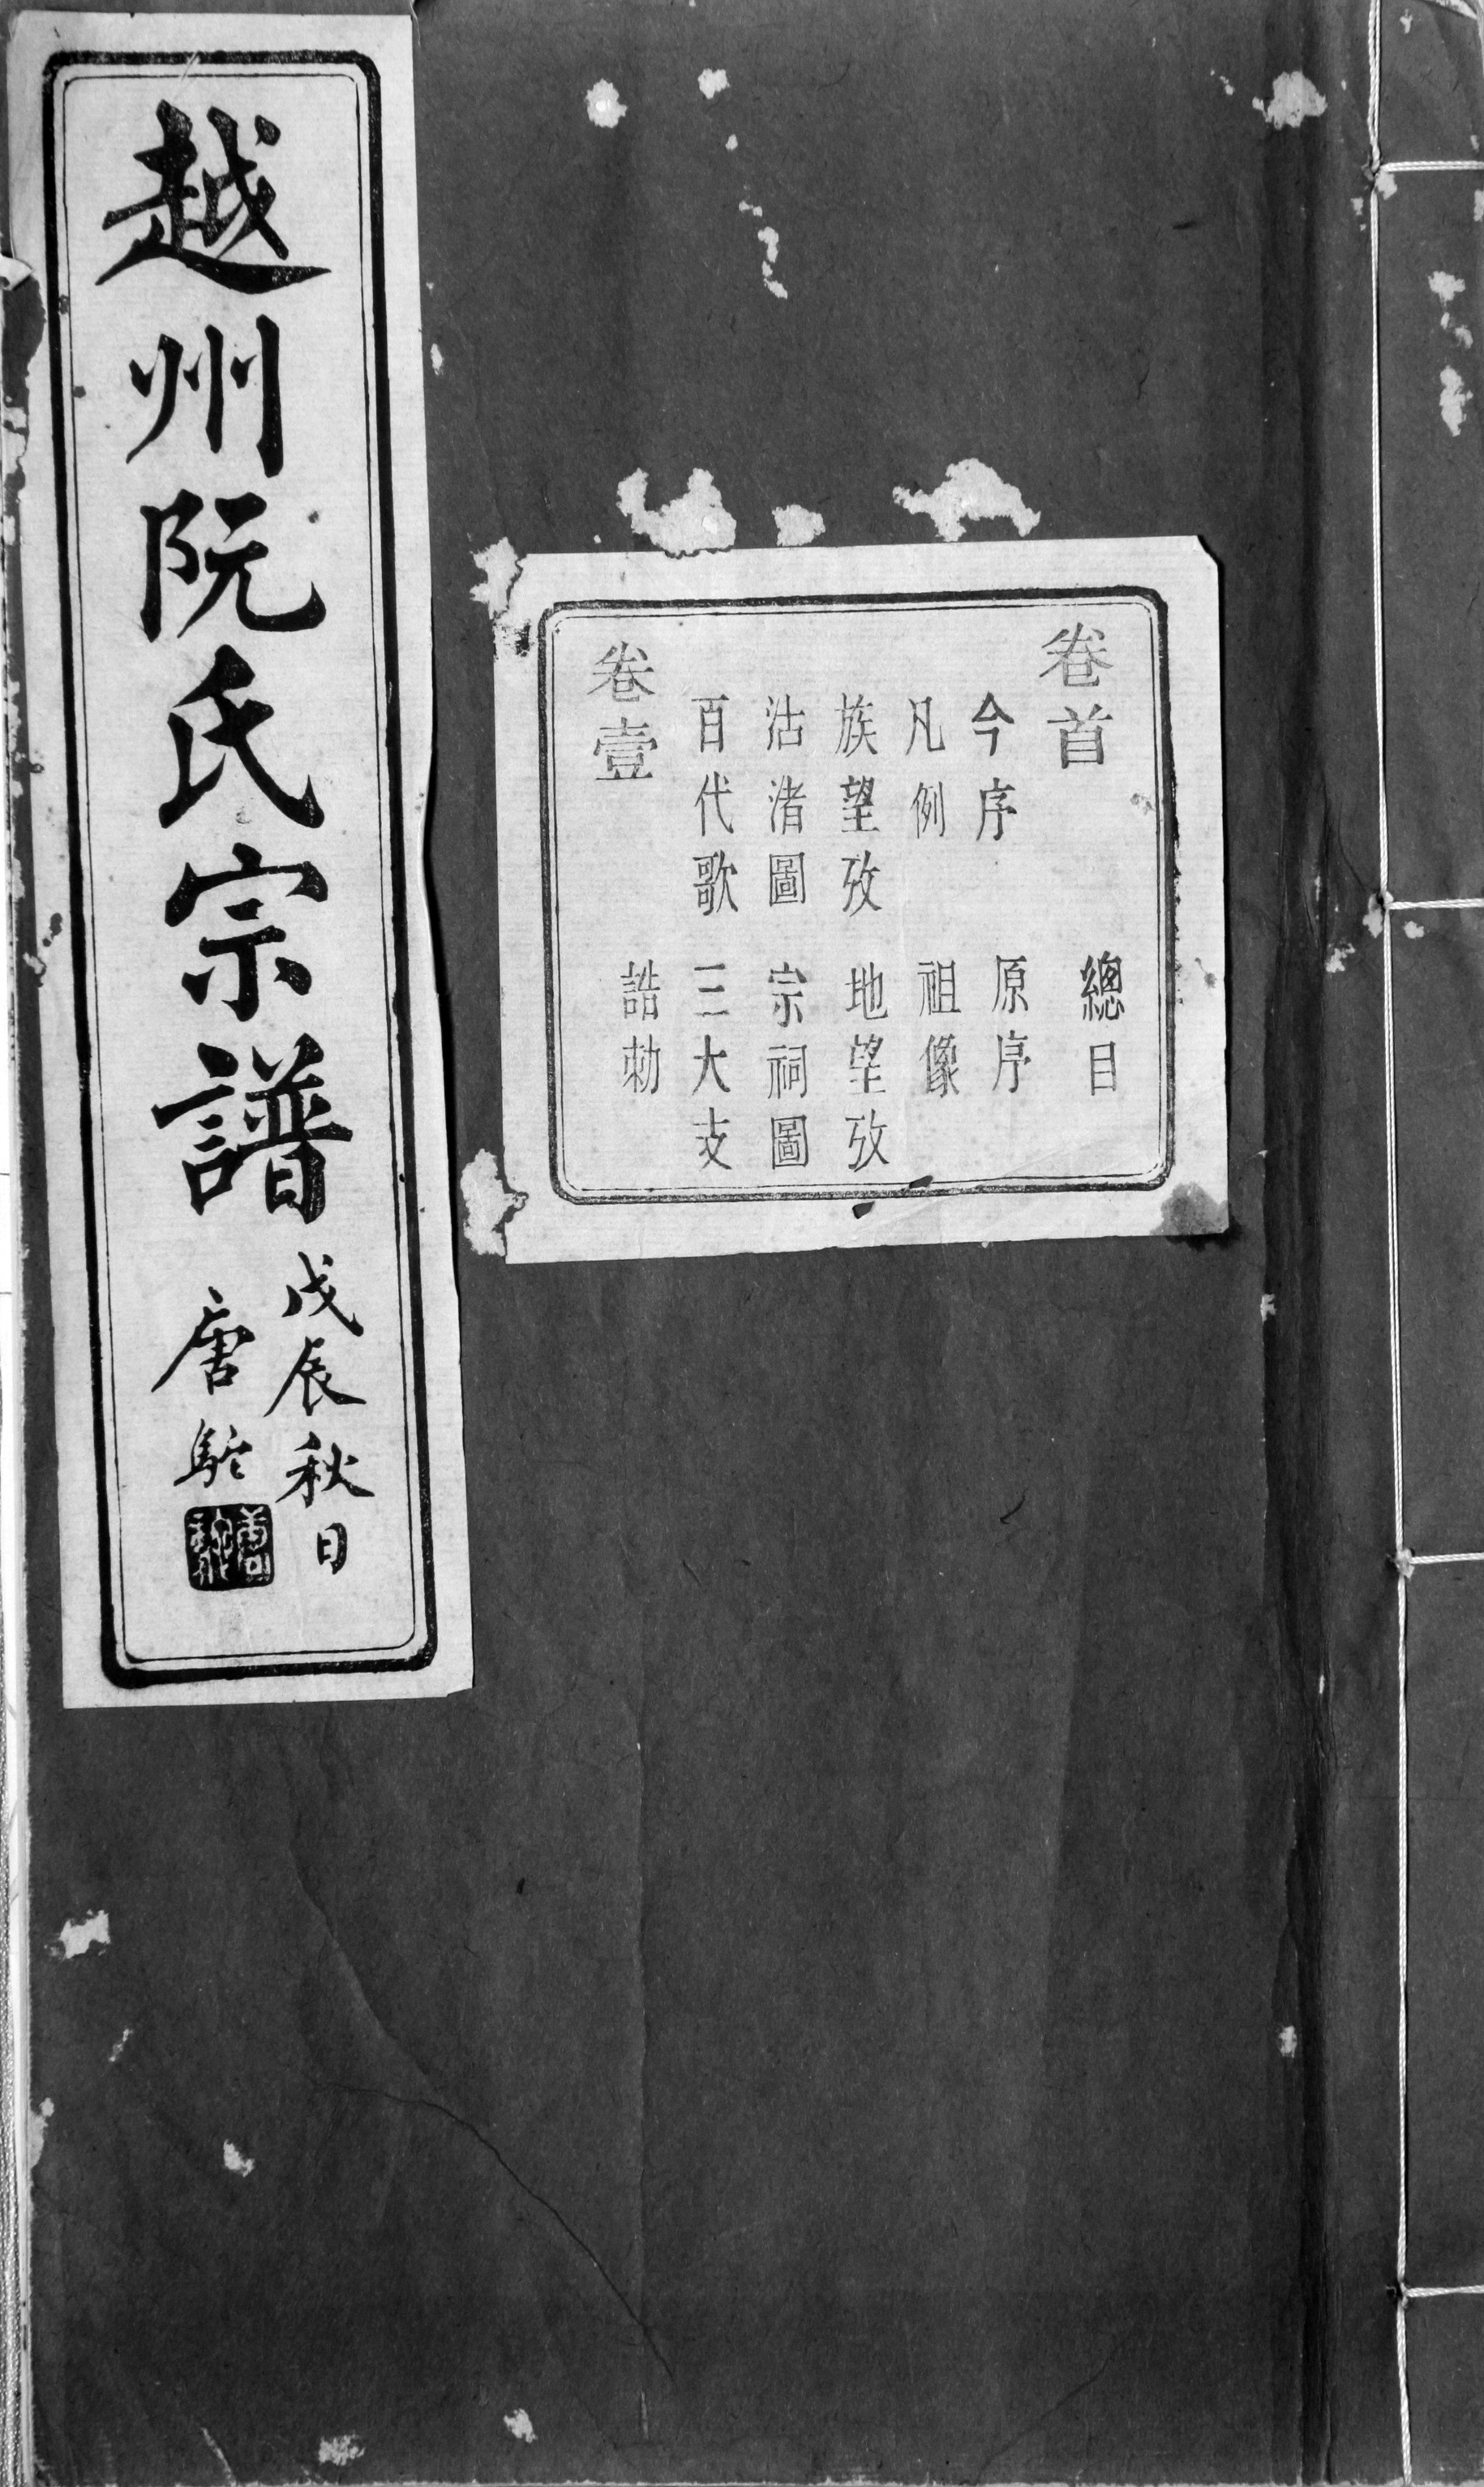 越州阮氏宗譜
戊辰秋日
唐駝
卷首　總目
今序　原序
凡例　祖像
族望攷　地望攷
沽渚圖　宗祠圖
百代歌　三大支
卷壹　誥勅